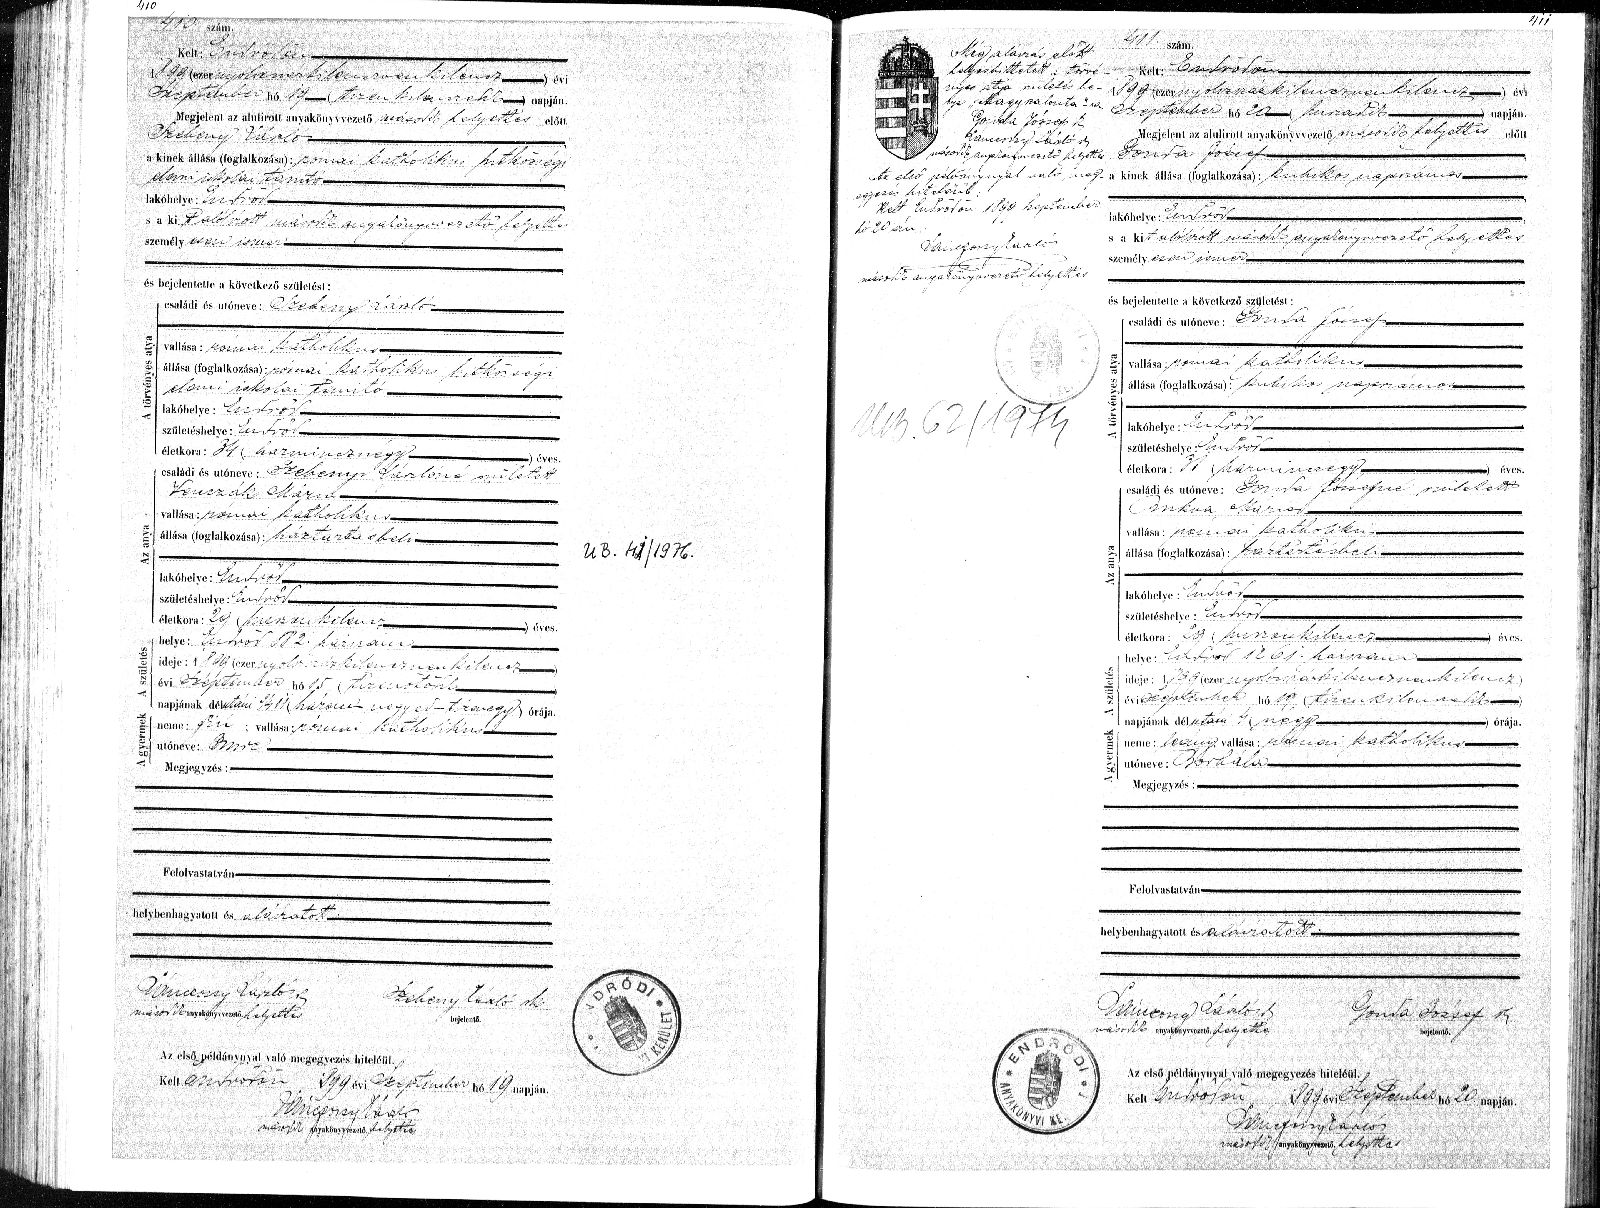 410
410 szám.
Kelt: Endrődön
1899 (ezernyolcszázkilenczvenkilencz) évi
Szeptember hó 19 (tizenkilenczedik) napján.
Megjelent az alulirott anyakönyvvezető második helyettes előtt
Szebeny László
a kinek állása (foglalkozása): római katholikus hitközségi
elemi iskolai tanító
lakóhelye: Endrőd
s a kit alólirott második anyakönyvvezető helyettes
személyesen ismer
és bejelentette a következő születést:
A törvényes atya
családi és utóneve: Szebeny László
vallása: római katholikus
állása (foglalkozása): római katholikus hitközségi
elemi iskolai tanító
lakóhelye: Endrőd
születéshelye: Endrőd
életkora: 34 (harmincznégy) éves.
Az anya
családi és utóneve: Szebeny Lászlóné született
Mária
vallása: római katholikus
állása (foglalkozása): háztartásbeli
lakóhelye: Endrőd
születéshelye: Endrőd
életkora: 29 (huszonkilencz) éves.
A születés
helye: Endrőd 12. házszám
ideje: 1899 (ezernyolczszázkilenczvenkilencz)
évi Szeptember hó 15 (tizenötödik)
napjának délutáni órája.
A gyermek
neme: fiú; vallása: római katholikus
utóneve: Imre
Megjegyzés:
Felolvastatván
helybenhagyatott és aláiratott.
László
második anyakönyvvezető helyettes
Szebeny László sk
bejelentő.
ENDRŐDI KERÜLET
Az első példánynyal való megegyezés hiteléül.
Kelt Endrődön 1899 évi Szeptember hó 19 napján.
László
második anyakönyvvezető helyettes
UB. 41/1976.
411
Megalairás előtt
helyesbittetett: törvé-
nyes atya születés he-
lye
Gonda József sk
László sk
második anyakönyvvezető helyettes
Az első példánynyal való meg-
egyezés hiteléül.
Kelt Endrődön 1899 Szeptember
hó 20 án.
László
második anyakönyvvezető helyettes
UB. 62/1974
411 szám.
Kelt: Endrődön
1899 (ezernyolczszázkilenczvenkilencz) évi
Szeptember hó 20 (huszadik) napján.
Megjelent az alulirott anyakönyvvezető második helyettes előtt
Gonda József
a kinek állása (foglalkozása): kubikos napszámos
lakóhelye: Endrőd
s a kit alólirott második anyakönyvvezető helyettes
személyesen ismer
és bejelentette a következő születést:
A törvényes atya
családi és utóneve: Gonda József
vallása: római katholikus
állása (foglalkozása): kubikos napszámos
lakóhelye: Endrőd
születéshelye: Endrőd
életkora: éves.
Az anya
családi és utóneve: Gonda Józsefné született
Mária
vallása: római katholikus
állása (foglalkozása): háztartásbeli
lakóhelye: Endrőd
születéshelye: Endrőd
életkora: 29 (huszonkilencz) éves.
A születés
helye: Endrőd 1261. házszám
ideje: 1899 (ezernyolczszázkilenczvenkilencz)
évi Szeptember hó 19 (tizenkilenczedik)
napjának délutáni 4 (négy) órája.
A gyermek
neme: leány; vallása: római katholikus
utóneve: Borbála
Megjegyzés:
Felolvastatván
helybenhagyatott és aláiratott.
László sk
második anyakönyvvezető helyettes
Gonda József sk
bejelentő.
ENDRŐDI ANYAKÖNYVI KE.
Az első példánynyal való megegyezés hiteléül.
Kelt Endrődön 1899 évi Szeptember hó 20 napján.
László
második anyakönyvvezető helyettes